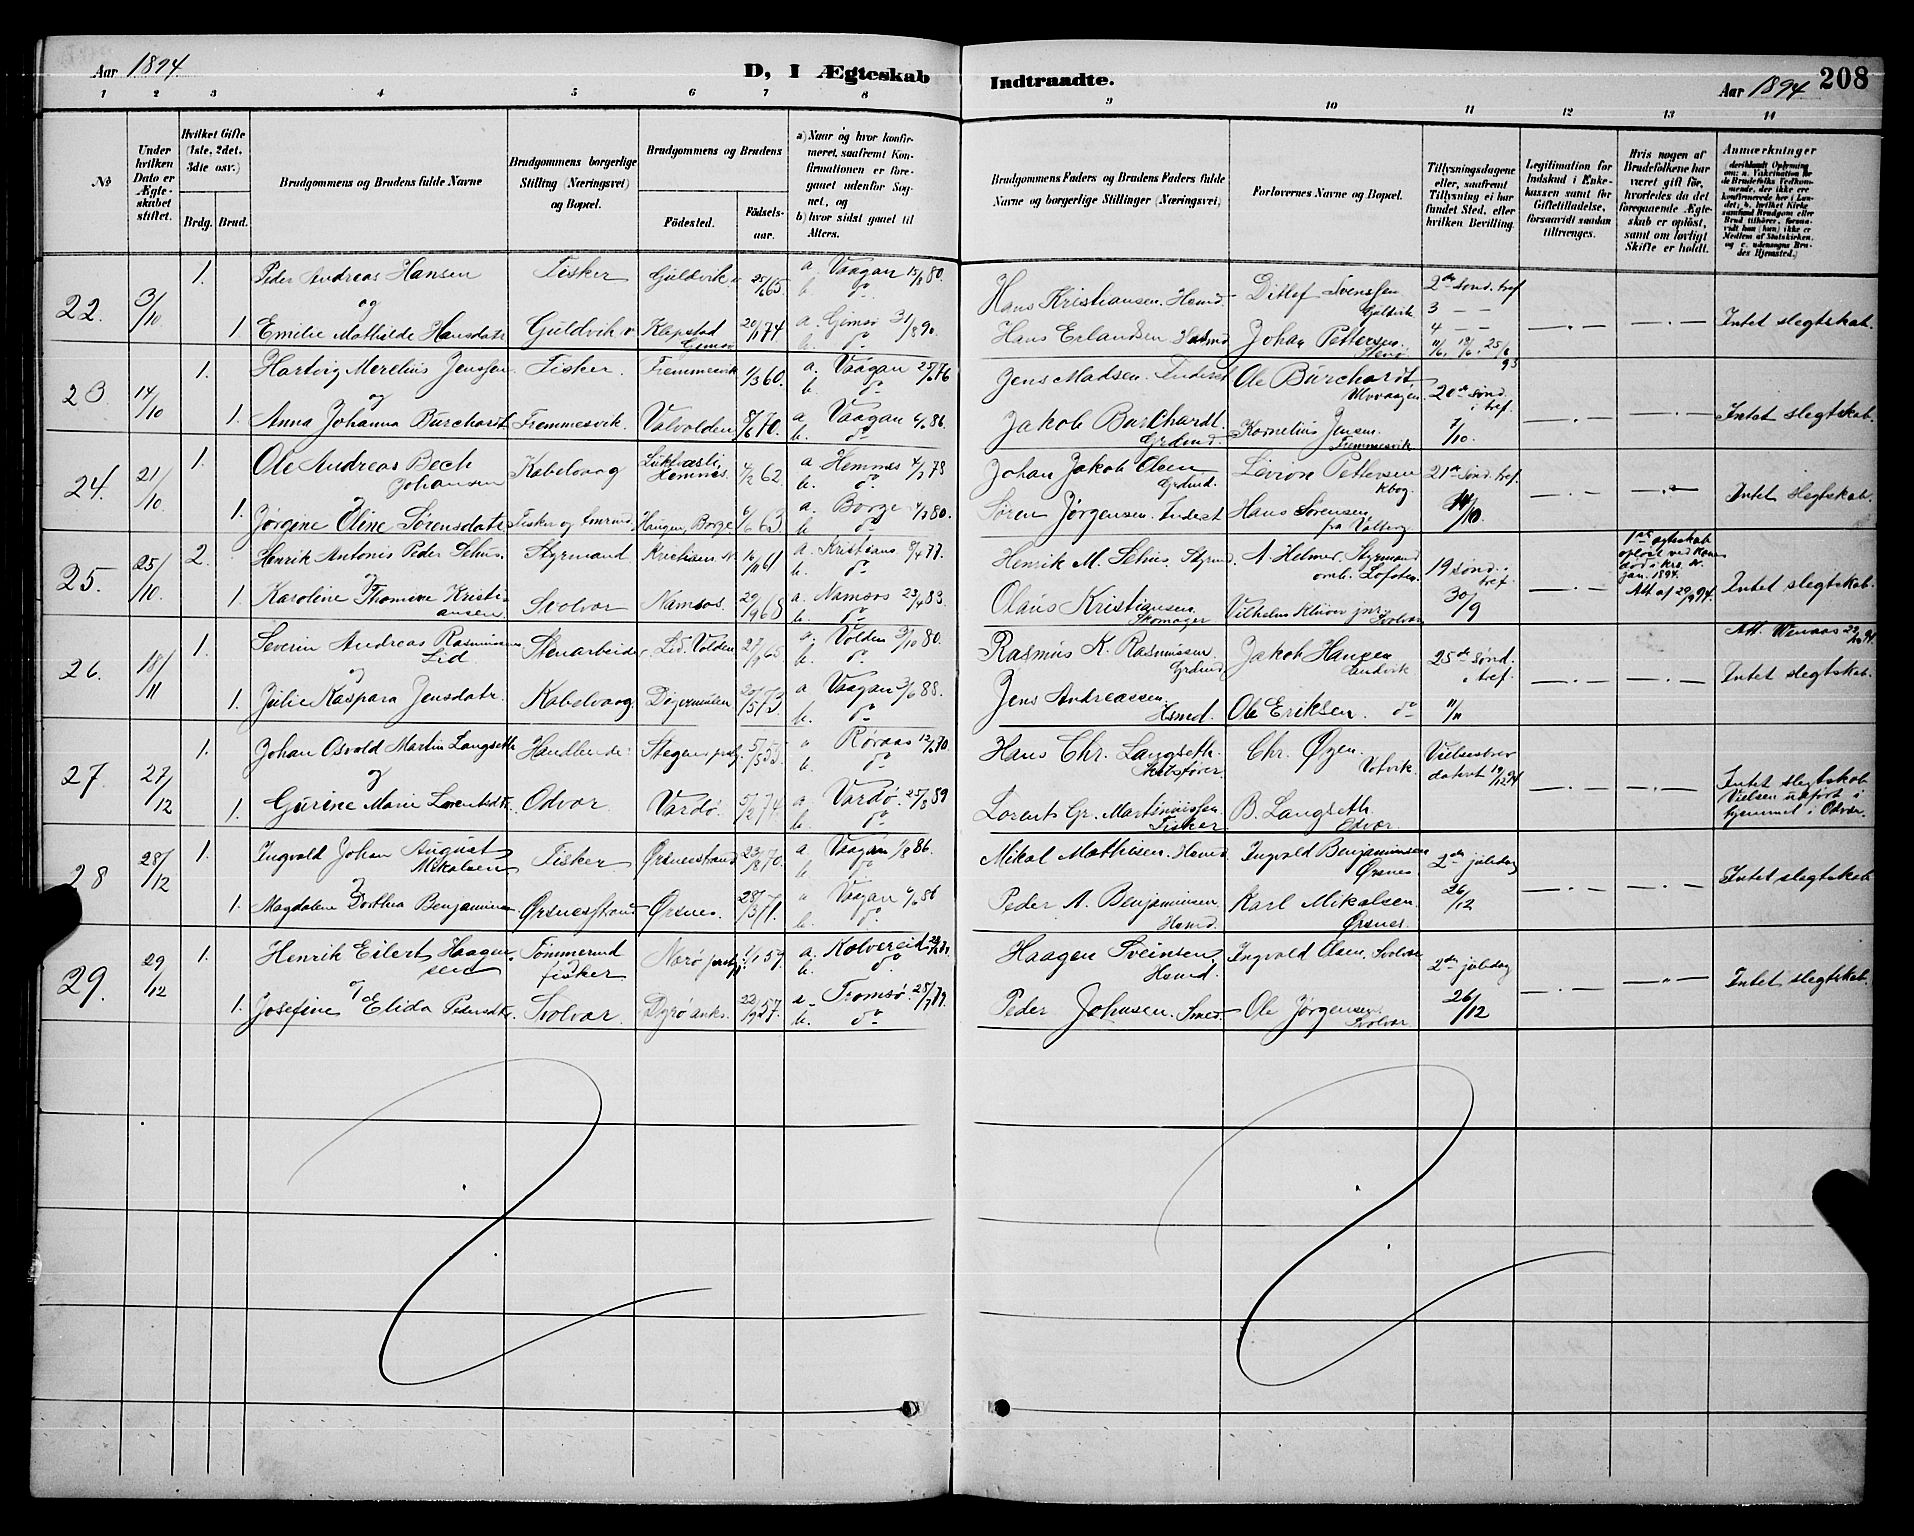 Aar 1894
D, I Ægteskab Indtraadte.
Aar 1894 208
1 2 3 4 5 6 7 8 9 10 11 12 13 14
No
Under hvilken Dato er Ægteskabet stiftet.
Hvilket Gifte (1ste, 2det, 3die osv.)
Brdg. Brud.
Brudgommens og Brudens fulde Navne
Brudgommens borgerlige Stilling (Næringsvei) og Bopæl.
Brudgommens og Brudens
Fødested. Fødselsaar.
a) Naar og hvor konfirmeret, saafremt Konfirmationen er foregaaet udenfor Sognet, og
b) hvor sidst gaaet til Alters.
Brudgommens Faders og Brudens Faders fulde Navne og borgerlige Stillinger (Næringsvei)
Forlovernes Navne og Bopæl.
Tillysningsdagene eller, saafremt Tillysning ei har fundet Sted, efter hvilken Bevilling.
Legitimation for Indskud i Enkekassen samt for Giftetilladelse, forsaavidt saadan tiltrænges.
Hvis nogen af Brudefolkene har været gift før, hvorledes da det foregaaende Ægteskab er opløst, samt om lovligt Skifte er holdt.
Anmærkninger
22. 3/10 1. Peder Andreas Hansen Fisker Guldvik 65 a. Vaagan 80. Hans Kristiansen. Hsmd. Ditlef Svenssen Guldvik 2de sønd. tref
og b. do 3 — —
1. Emilie Mathilde Hansdatr Guldvik Klepstad Gimsø 20/11 74 a. Gimsø 31/8 90. b. do Hans Erlandsen Johan Pettersen 4 — — Intet slegtskab.
23 14/10 1. Hartvig Merelius Jenssen Fisker. Fremmesvik 1/3 60. a. Vaagan 25/6 76 b. do Jens Madsen. Inderst Ole Burchardt, Ulvvaagen 20de sønd. i tref.
og
1. Anna Johanna Burchardt Fremmesvik. Valvolden 8/6 70. a. Vaagan 86. b. do Jakob Burchardt. Grdmd. Kornelius Jensen. Fremmesvik 7/10. Intet slegtskab.
24. 21/10 1. Ole Andreas Bech Johansen Kabelvaag Hemnes 4/2 62. a. Hemnes 78 b. do Johan Jakob Olsen Grdmd. Levion Pettersen Kbog. 21de sønd. tref.
1. Jørgine Oline Sørensdatr Fisker og Haugen, Borge 6/6 63 a. Borge 80. b. do Søren Jørgensen. Inderst Hans Sørensen fra Valberg. 14/10. Intet slegtskab.
25. 25/10 2. Henrik Antonis Peder Sehus. Styrmand Kristians N. 16/11 61 a. Kristians 8/4 77. b. do Henrik M. Sehus, Styrmd. A. Helmer, Styrmand omb. Lofoten. 19 sønd. i tref. 1ste egteskab opløst ved Kones død i krs. N. jan. 1894.
og
1. Karoline Thomine Kristiansen Svolvær Namsos. 29/9 68. a. Namsos 23/4 83. b. do Olaus Kristiansen Skomager Vilhelm Klüver jnr. Svolvær 30/9 Att. af 29/9 94. Intet slegtskab.
26. 18/11 1. Severin Andreas Rasmussen Lid Stenarbeider Lid. Volden 27/9 65 a. Volden 3/10 80. b. do Rasmus K. Rasmussen. Grdmd. Jakob Hansen Sandvik 25de sønd. i tref. Att. Wenaas 94.
og
1. Julie Kaspara Jensdatr. Kabelvaag Digermulen 20/5 73. a. Vaagan 3/6 88. b. do Jens Andreassen Hsmd. Ole Eriksen. do 11/11 Intet slegtskab.
27. 27/12 1. Johan Osvold Martin Langseth Handlende Stegens prstg. 5/5 55. a. Røraas 70. b. do Hans Chr. Langseth. Skibsfører. Chr. Øyen. Votvik. Vielsesbrev datert 19/12 94
og
1. Gurine Marie Lorentsdtr. Odvær Vardø. 5/2 74. a. Vardø. 25/8 89 b. do Lorents Gr. Martinussen. Fisker. B. Langseth Odvær. Intet slegtskab Vielsen utført i hjemmet i Odvær.
28 28/12 1. Ingvald Johan August Mikalsen Fisker Ørsnesstrand 23/8 70. a. Vaagan 1/8 86. b. do Mikal Mathisen. Hsmd. Ingvald Benjaminsen Ørsnes 2den juledag
og
1. Magdalene Dorthea Benjaminsen Ørsnesstrand Ørsnes. 28/3 71. a. Vaagan 86 b. do Peder A. Benjaminsen Hsmd. Karl Mikalsen. Ørsnes. 26/12 Intet slegtskab
29. 29/12 1. Henrik Eilert Haagensen Tømmermd fisker Nærø prstg. 57. a. Kolvereid b. do Haagen Sveinsen. Hsmd. Ingvald Olsen. Svolvær 2den juledag
og
1. Josefine Elida Pedersdtr. Svolvær. Dyrø anks. 22/9 57. a. Tromsø. b. do Peder Johnsen. Smed. Ole Jørgensen. Svolvær. 26/12 Intet slegtskab.